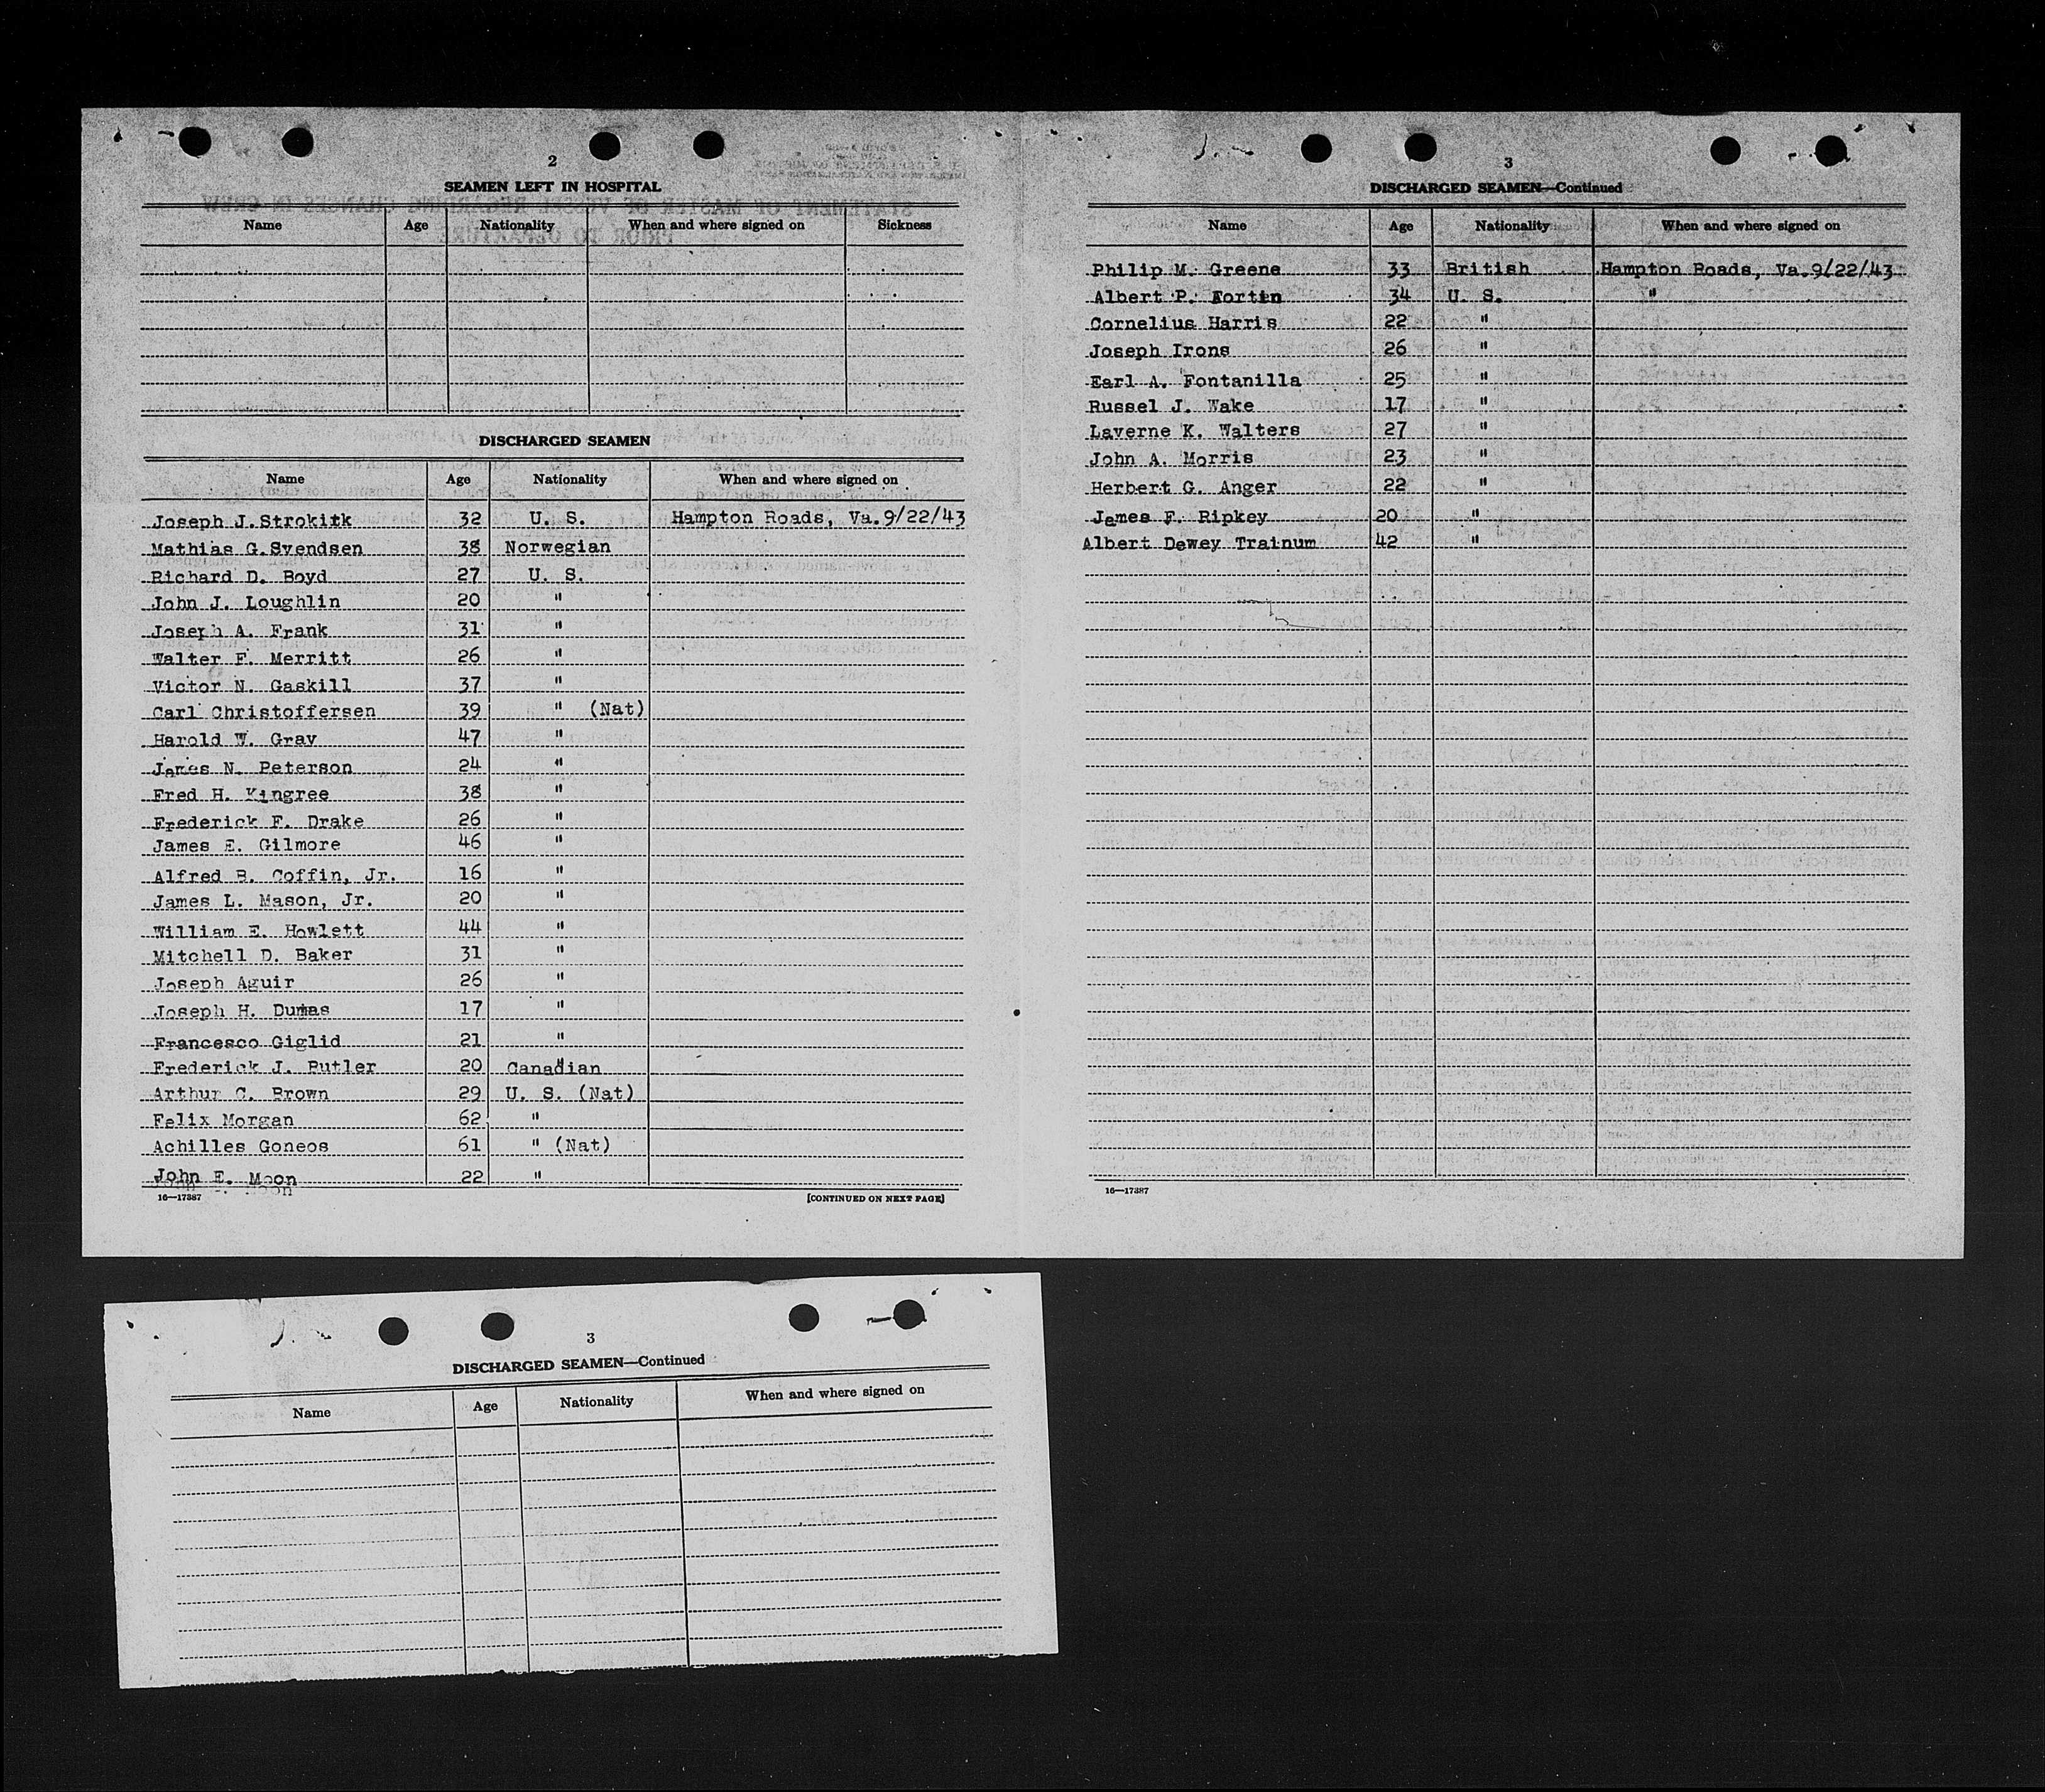 2
SEAMEN LEFT IN HOSPITAL
Name Age Nationality When and where signed on Sickness
DISCHARGED SEAMEN
Name Age Nationality When and where signed on
Joseph J. Strokitk 32 U. S. Hampton Roads, Va. 9/22/43
Mathias G. Svendsen 38 Norwegian
Richard D. Boyd 27 U. S.
John J. Loughlin 20 "
Joseph A. Frank 31 "
Walter F. Merritt 26 "
Victor N. Gaskill 37 "
Carl Christoffersen 39 " (Nat)
Harold W. Gray 47 "
James N. Peterson 24 "
Fred H. Kingree 38 "
Frederick F. Drake 26 "
James E. Gilmore 46 "
Alfred B. Coffin, Jr. 16 "
James L. Mason, Jr. 20 "
William E. Howlett 44 "
Mitchell D. Baker 31 "
Joseph Aguir 26 "
Joseph H. Dumas 17 "
Francesco Giglid 21 "
Frederick J. Butler 20 Canadian
Arthur C. Brown 29 U. S. (Nat)
Felix Morgan 62 "
Achilles Goneos 61 " (Nat)
John E. Moon 22 "
16—17387 [CONTINUED ON NEXT PAGE]
3
DISCHARGED SEAMEN—Continued
Name Age Nationality When and where signed on
Philip M. Greene 33 British Hampton Roads, Va. 9/22/43
Albert P. Fortin 34 U. S. "
Cornelius Harris 22 "
Joseph Irons 26 "
Earl A. Fontanilla 25 "
Russel J. Wake 17 "
Laverne K. Walters 27 "
John A. Morris 23 "
Herbert G. Anger 22 "
James F. Ripkey 20 "
Albert Dewey Trainum 42 "
16—17387
3
DISCHARGED SEAMEN—Continued
Name Age Nationality When and where signed on